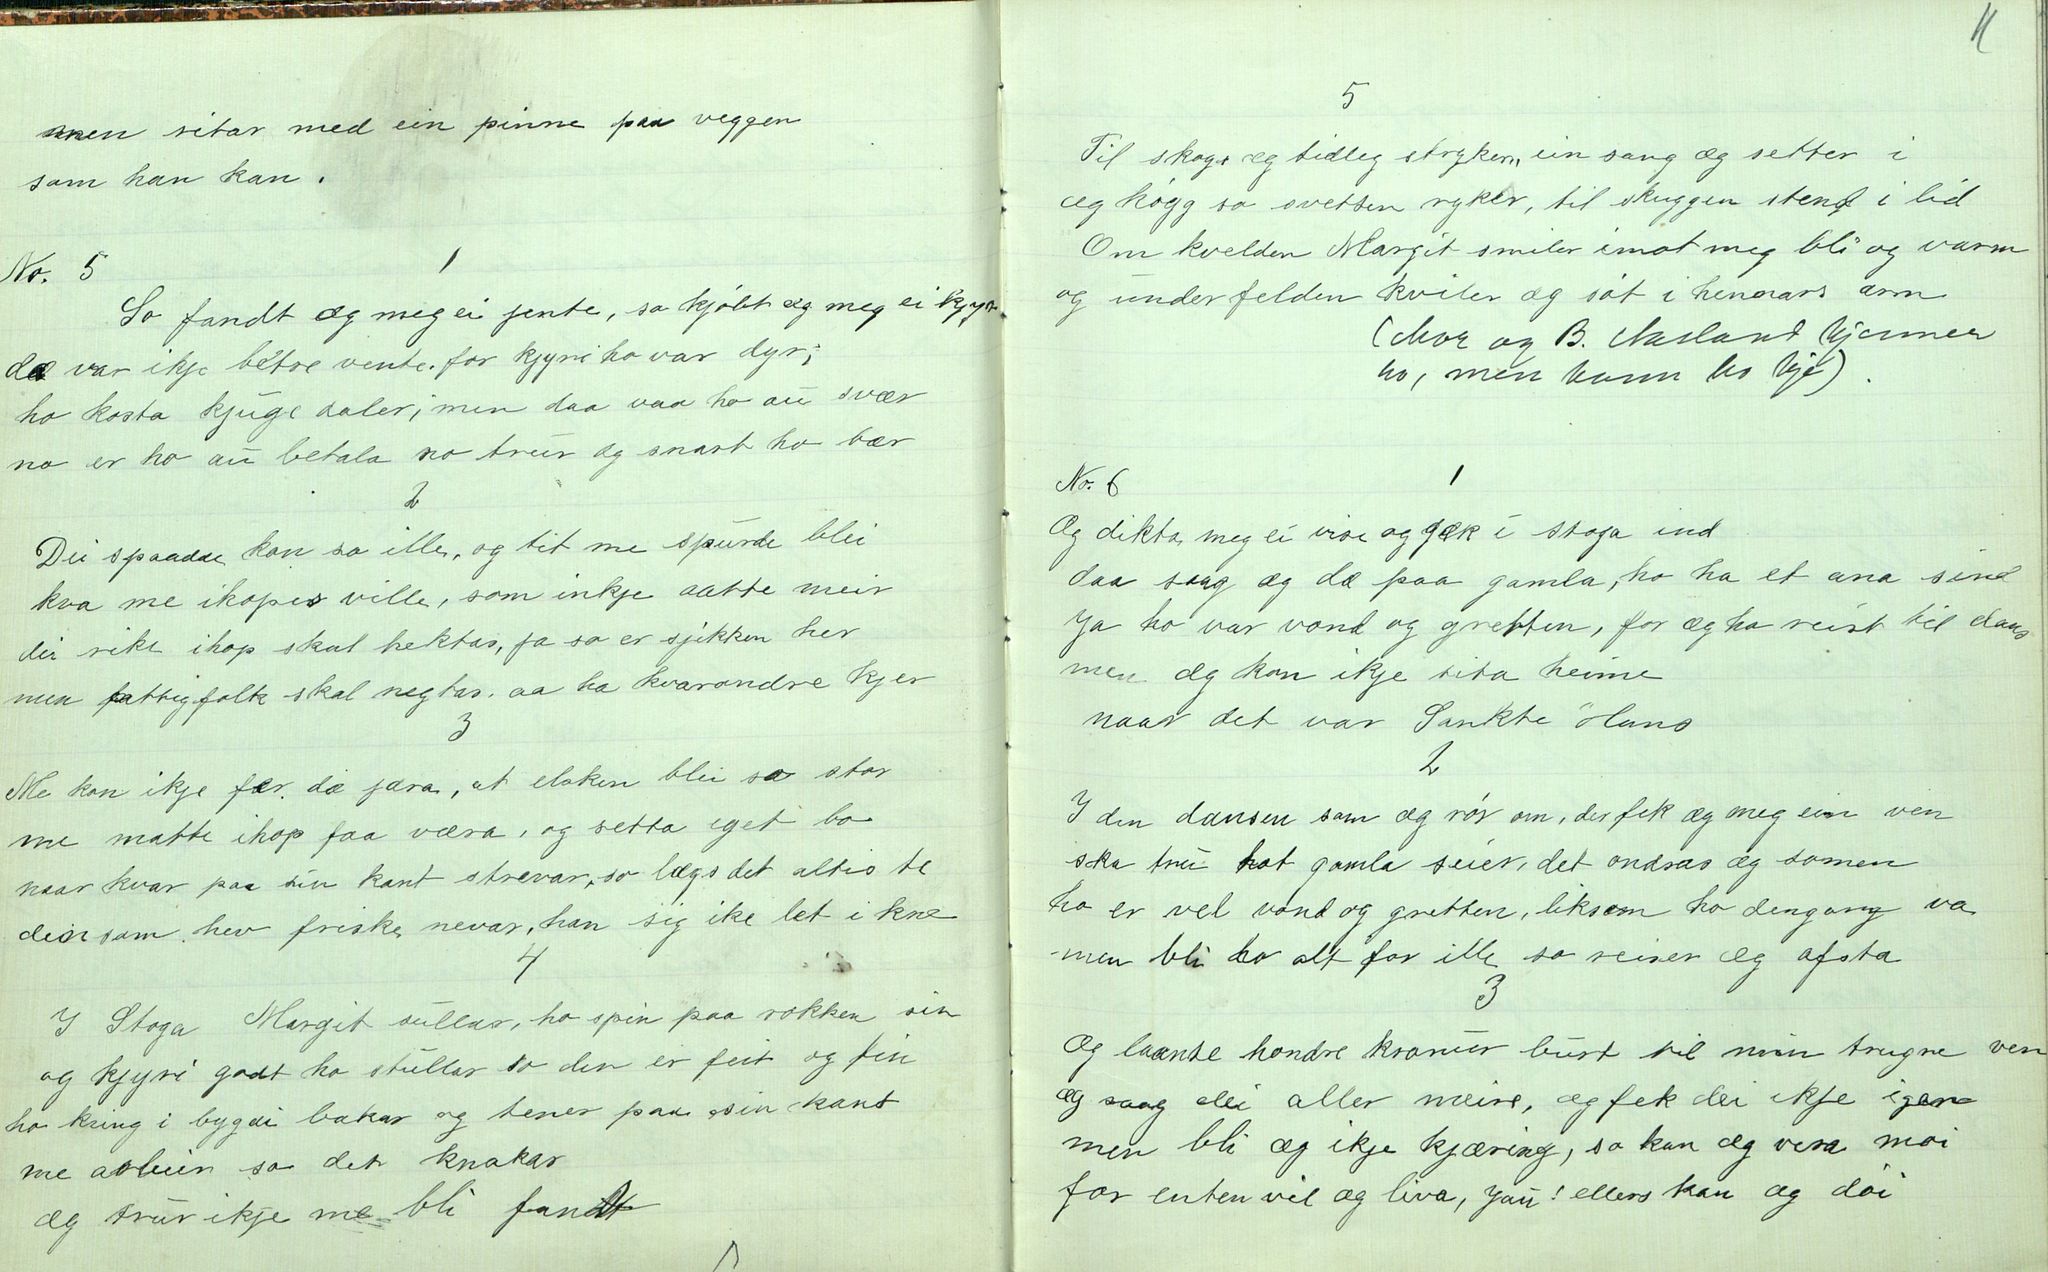 men sitar med ein pinne paa veggen
som han kan.
No. 5
1
So fandt æg meg ei jente, so kjöbt æg meg ei kjyr
dæ var ikje betre vente, for kjyri ho var dyr;
ho kosta kjuge daler; men daa vaa ho au svær
no er ho au betala no trur æg snart ho bær
2
Dei spaadde kon so ille, og tit me spurde blei
kva me ihopes ville, som inkje aatte meir
dei rike ihop skal hektas, ja so er sjikken her
men fattigfolk skal negtas. aa ha kvarandre kjer
3
Me kon ikje fær dæ jæra, at elsken blei so stor
me matte ihop faa væra, og setta eget bo
naar kvar paa sin kant strevar, so lægs det altis te
dein som hev friske nevar, han sig ike let i kne
4
I Stoga Margit sullar, ho spin paa rokken sin
og kjyri godt ho stullar so den er feit og fin
ho kring i bygdi bakar og tener paa sin kant
me arbeier so det knakar
æg trur ikje me bli fandt
11
5
Til skogs æg tidleg stryker, ein sang æg setter i
æg högg so svetten ryker, til skuggen stend i lid
Om kvelden Margit smiler imot meg bli og varm
og under felden kviler æg söt i hennars arm
(Mor og B. Aasland kjenner
ho, men kunn ho kje).
No. 6
1
Æg dikta meg ei vise og gjek i stoga ind
daa saag æg dæ paa gamla, ho ha et ana sind
Ja ho var vond og gretten, for æg ha reist til dans
men æg kon ikje sita heime
naar det var Sankte Hans
2
I den dansen som æg rör om, der fek æg meg ein ven
ska tru kot gamla seier, det ondras æg somen
ho er vel vond og gretten, liksom ho dengang va
men bli ho alt for ille so reiser æg afsta
3
Æg laante hondre kronur burt til min trugne ven
æg saag dei aller meire, æg fek dei ikje igen
men bli æg ikje kjæring, so kan æg vera moi
for enten vil æg liva, jau! ellers kan æg döi